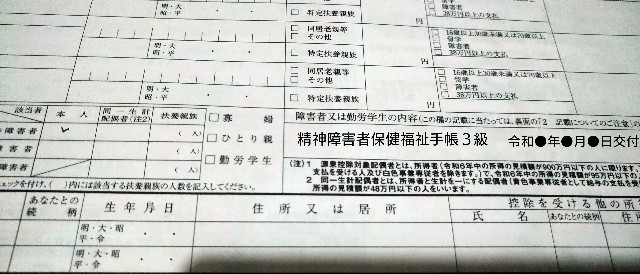 明・大
昭・平
特定扶養親族
障害者
38万円以上の支払
同居老親等
その他
特定扶養親族
円
16歳以上30歳未満又は70歳以上
留学
障害者
38万円以上の支払
同居老親等
その他
特定扶養親族
円
16歳以上30歳未満又は70歳以上
留学
障害者
38万円以上の支払
明・大
昭・平
該当者
本人
同一生計
配偶者(注2)
扶養親族
寡婦
ひとり親
勤労学生
障害者
(人)
(人)
(人)
障害者又は勤労学生の内容(この欄の記載に当たっては、裏面の「2 記載についてのご注意」の
精神障害者保健福祉手帳3級 令和●年●月●日交付
(注)1 源泉控除対象配偶者とは、所得者(令和6年中の所得の見積額が900万円以下の人に限ります。
支払を受ける人及び白色事業専従者を除きます。)で、令和6年中の所得の見積額が95万円以下の
2 同一生計配偶者とは、所得者と生計を一にする配偶者(青色事業専従者として給与の支払を受
所得の見積額が48万円以下の人をいいます。
ェックを付け、( )内には該当する扶養親族の人数を記入してください。
あなたとの
続柄
生年月日
住所又は居所
控除を受ける他の所
氏名
あなたとの続柄
住
明・大・昭
平・令
明・大・昭
平・令